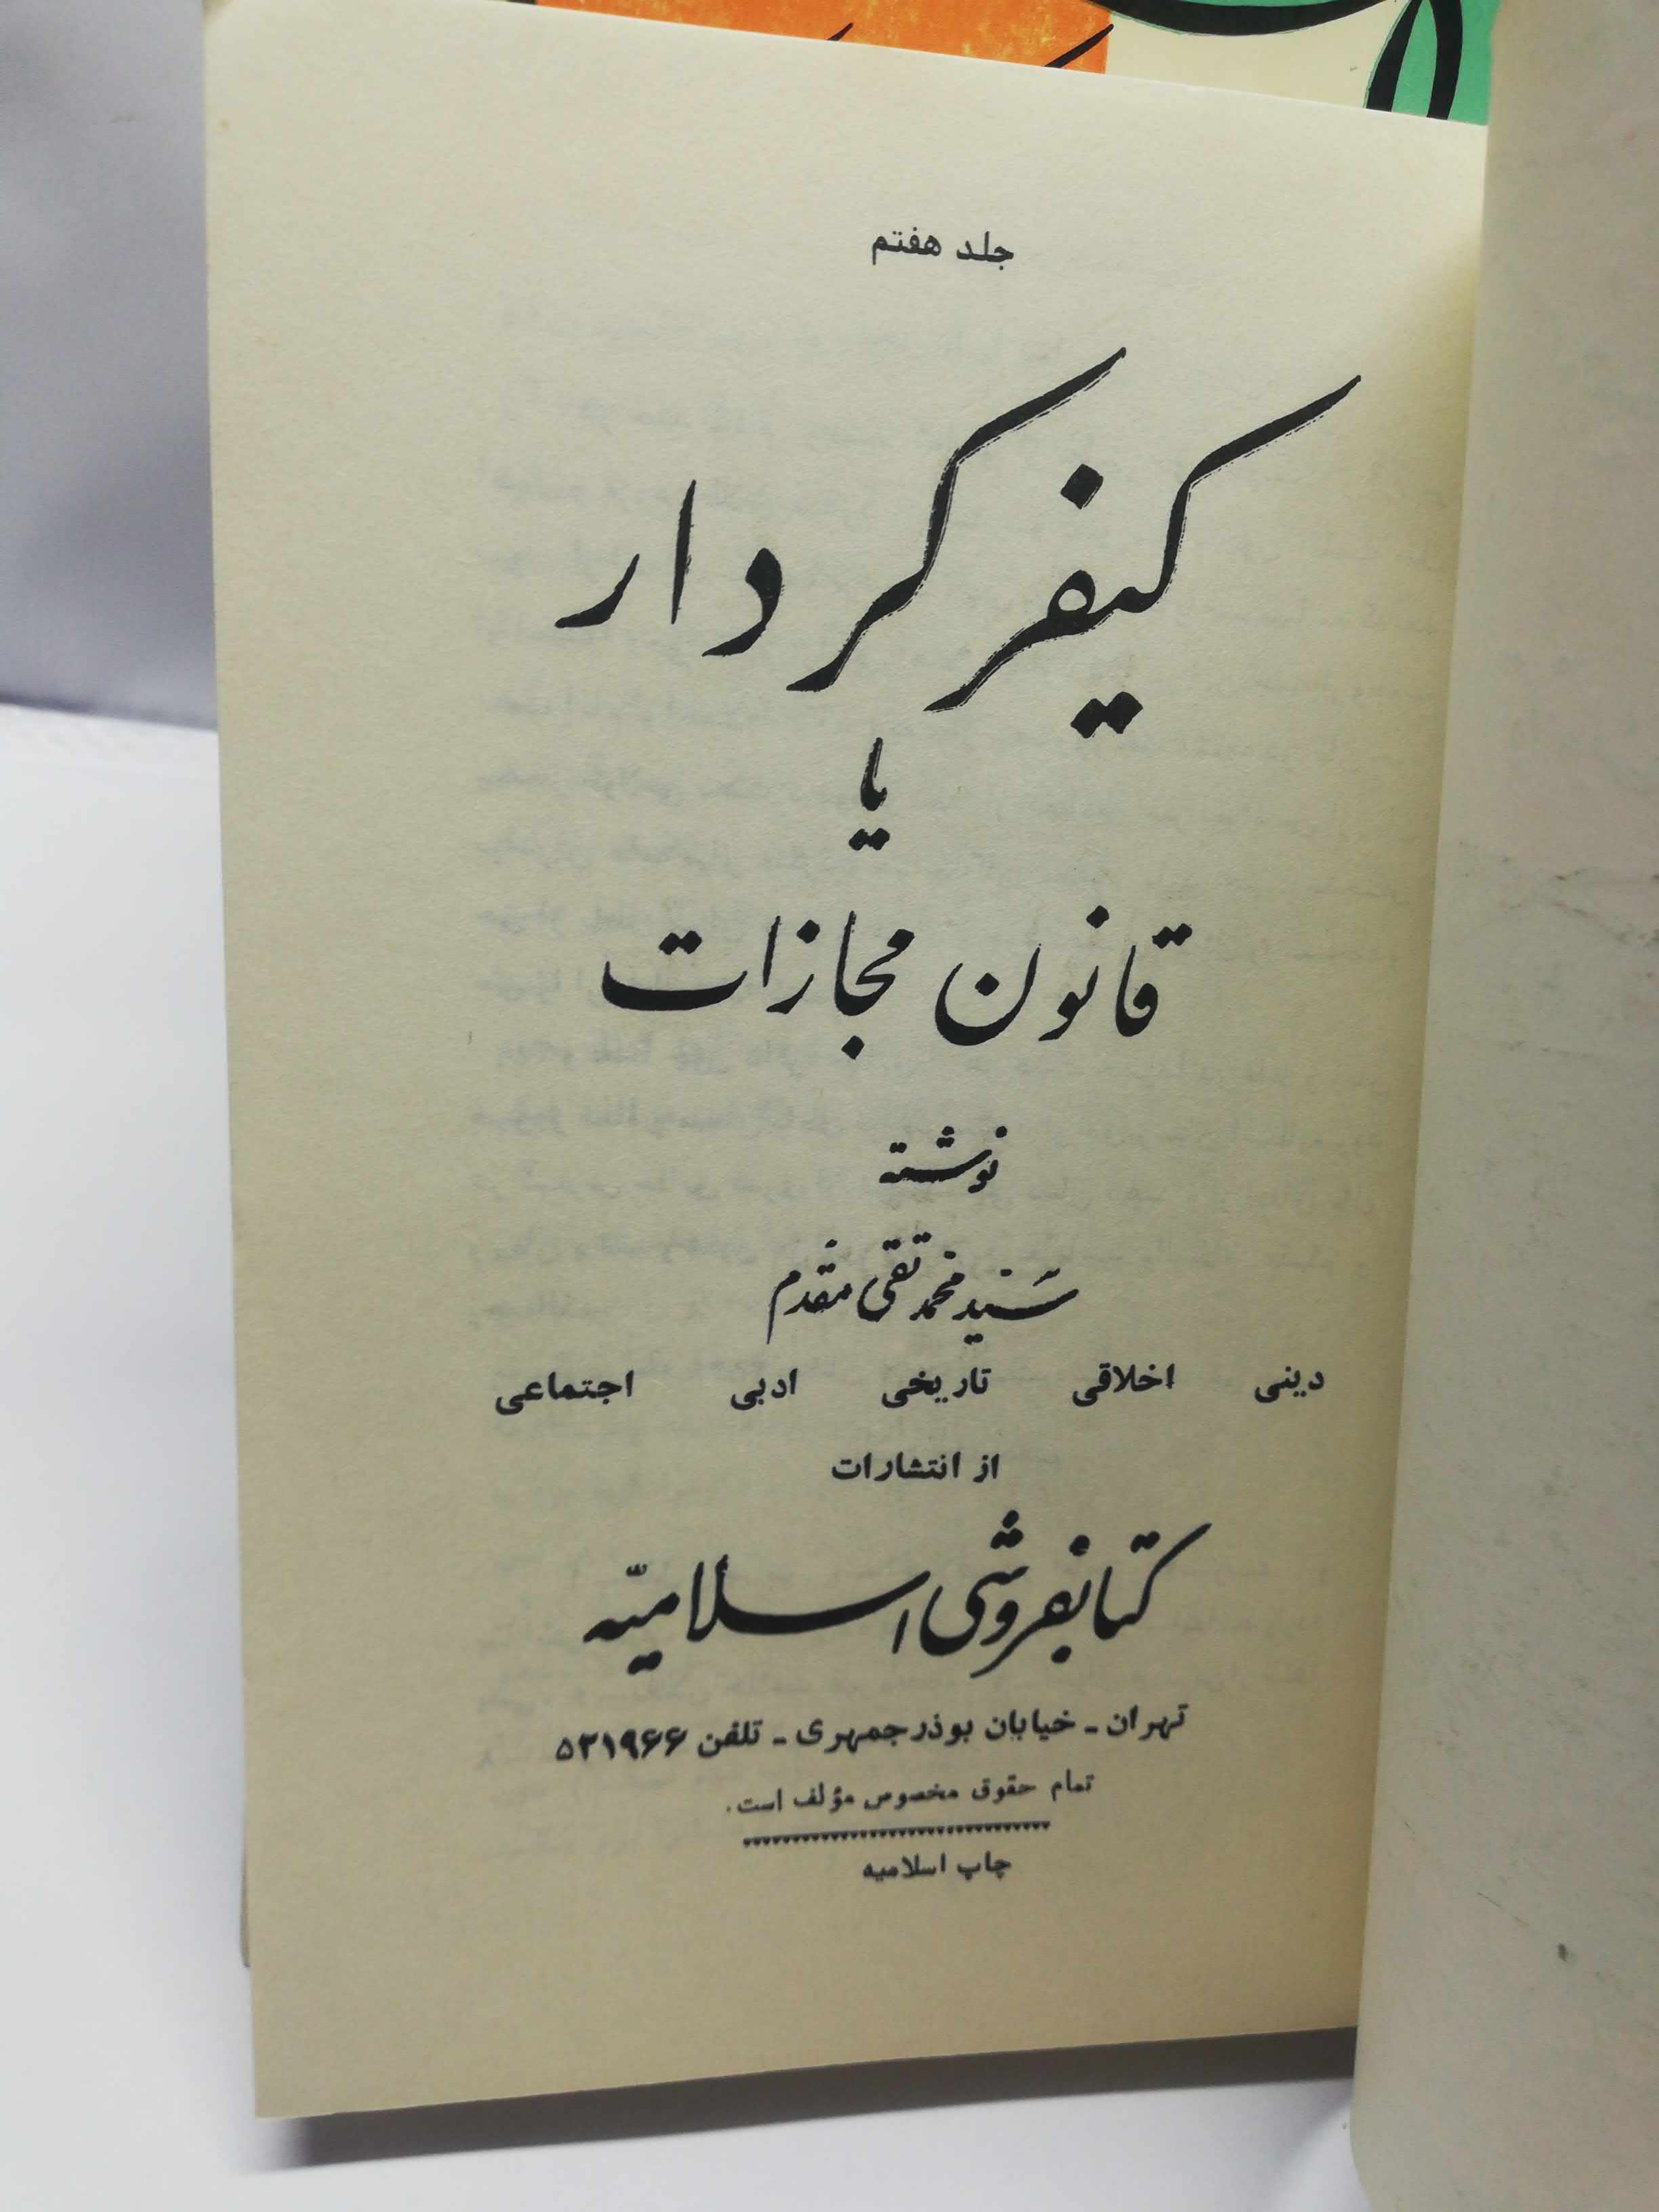 جلد هفتم
کیفر کردار
یا
قانون مجازات
نوشته
سید محمد تقی مقدم
دینی اخلاقی تاریخی ادبی اجتماعی
از انتشارات
کتابفروشی اسلامیّه
تهران ـ خیابان بوذرجمهری ـ تلفن ۵۲۱۹۶۶
تمام حقوق مخصوص مؤلف است.
چاپ اسلامیه